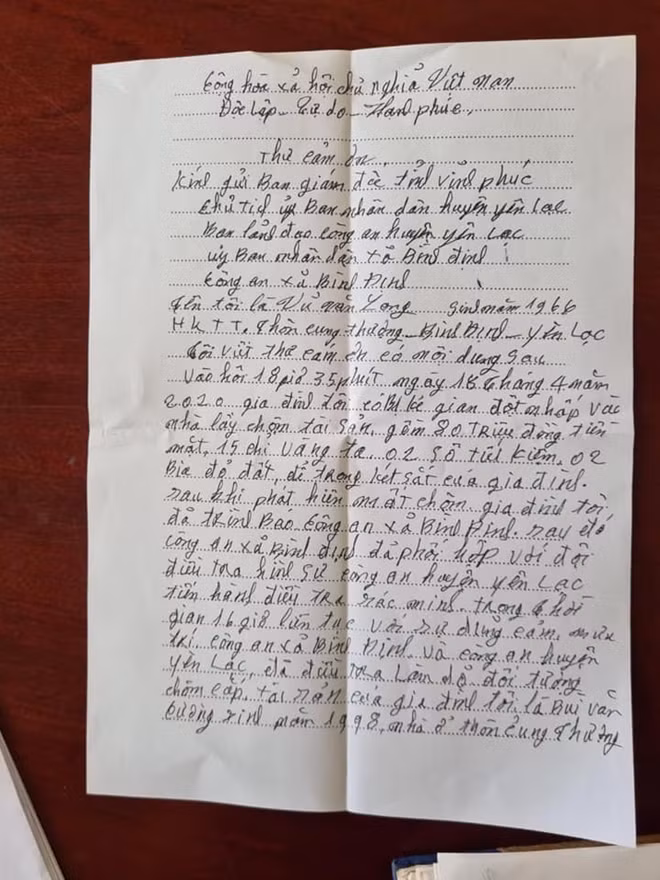 Cộng hòa xả hội chủ nghỉa Việt Nam
Độc lập – Tự do – Hanh phúc,
Thư cảm ơn.
Kính gửi Ban giám đốc tỉnh vĩnh phúc
Chủ tịch ủy Ban nhân dân huyện yên Lạc
Ban lảnh đạo công an huyện yên Lạc
ủy Ban nhân dân xả Bình định
Công an xả Bình Định
Tên tôi là Vũ văn Long sinh năm 1966
HKTT. Thôn cung thượng – Bình Định – yên Lạc
Tôi viết thư cảm ơn có nội dung sau
Vào hồi 18 giờ 35 phút ngày 18 tháng 4 năm
2020 gia đình tôi có bị kẻ gian đột nhập vào
nhà lấy chộm tài sản, gồm 80 Triệu đồng tiền
mặt, 15 chỉ vàng ta, 02 Sổ tiết kiệm, 02
Bìa đỏ đất, để trong két sắt của gia đình.
sau khi phát hiện mất chộm gia đình tôi,
đả trình Báo công an xả Bình Định. sau đó
công an xả Bình định đả phối hợp với đội
điều tra hình sự công an huyện yên Lạc
tiến hành điều tra xác minh. trong thời
gian 16 giờ liên tục với sự dũng cảm, mưu
trí, công an xả Bình Định, và công an huyện
yên Lạc, đã điều tra Làm đỏ đối tượng
chộm cắp, tài sản của gia đình tôi là Bùi văn
Cường sinh năm 1998, nhà ở thôn cung Thượng